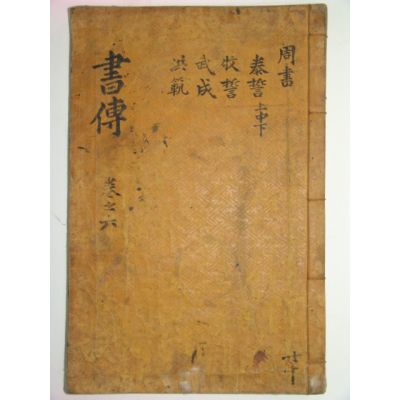 周書
泰誓 上中下
牧誓
武成
洪範
書傳
卷之六
共十